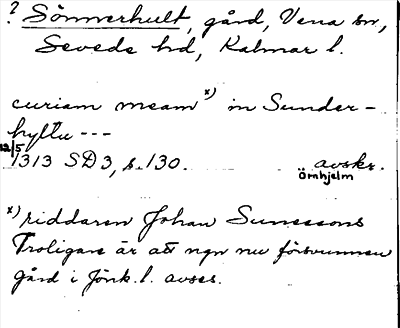 ? Sömmerhult, gård, Vena sn,
Sevede hd, Kalmar l.
curiam meam x) in Sunder-
hyltu ---
12/5
1313 SD3, s. 130. avskr.
Ömhjelm
x) riddaren Johan Sunessons
Troligare är att ngn nu försvunnen
gård i Jönk. l. avses.